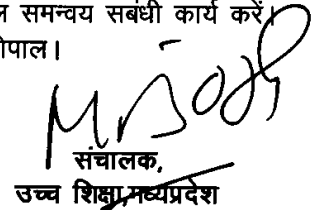 समन्वय सबंधी कार्य करें।
संचालक,
उच्च शिक्षा,मध्यप्रदेश